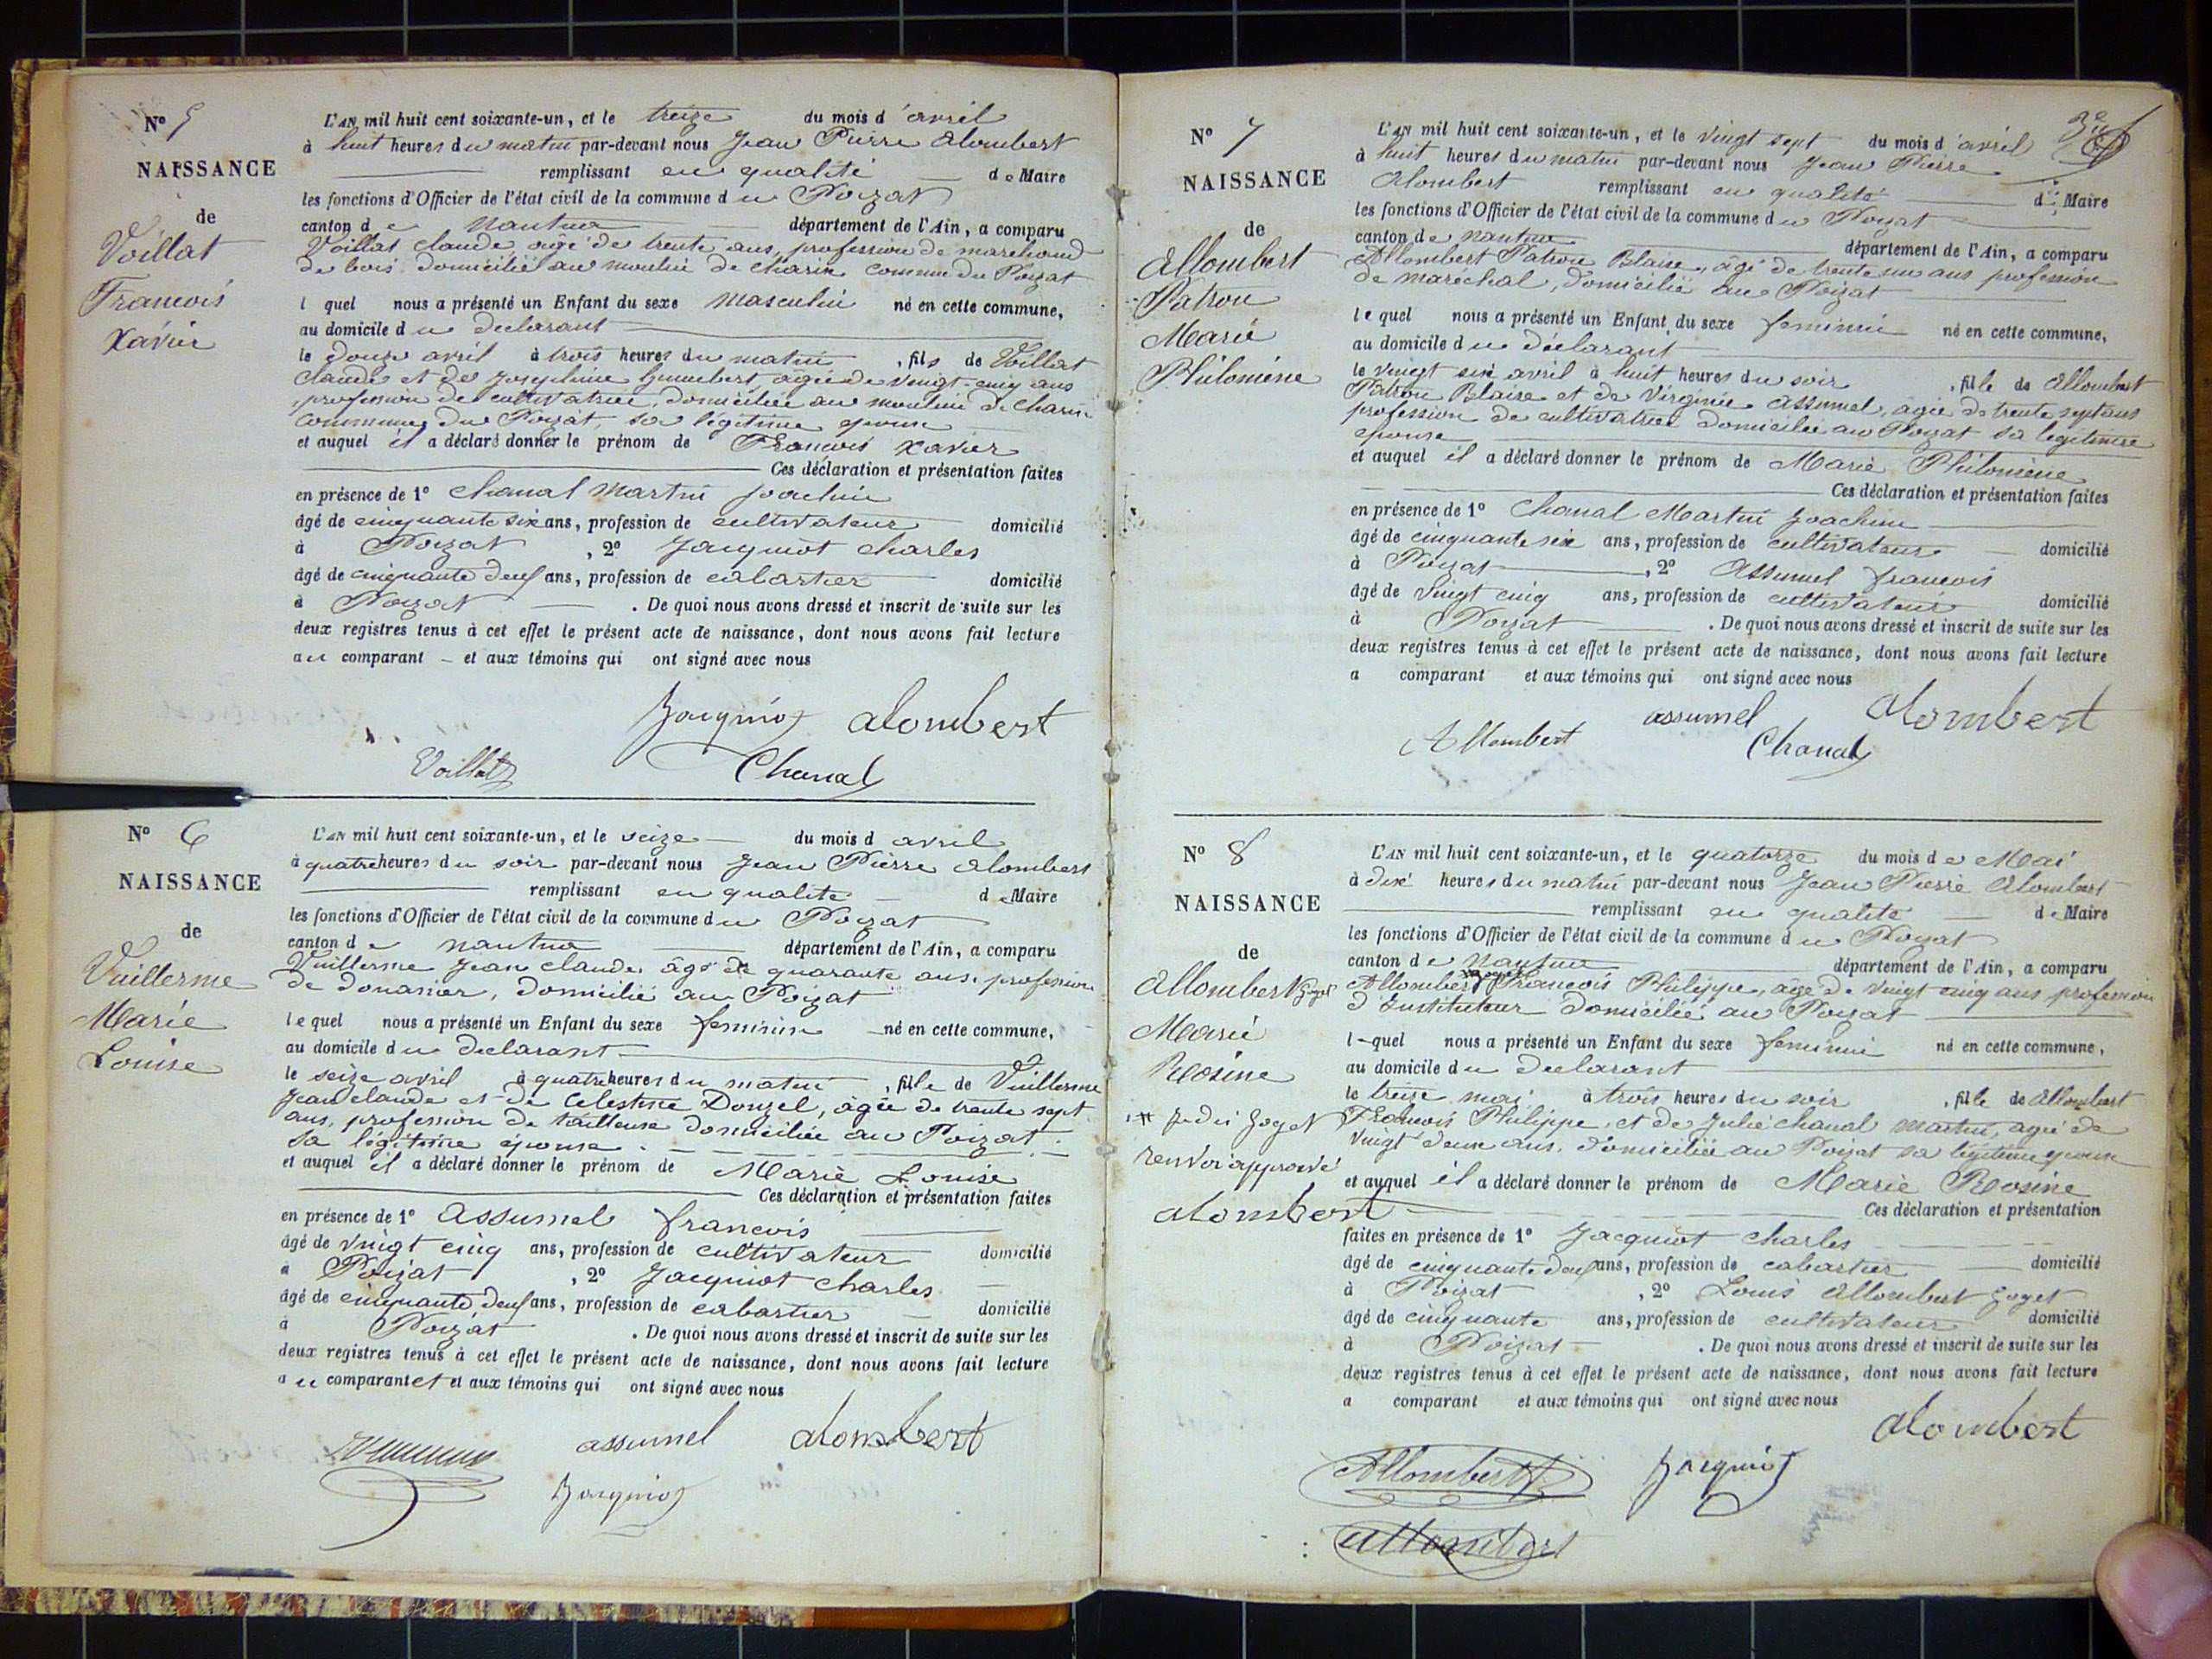 N° 5
NAISSANCE
de
Voillat
François
Xavier
L'AN mil huit cent soixante-un, et le treize du mois d'avril
à huit heures du matin par-devant nous Jean Pierre Alombert
remplissant en qualité de Maire
les fonctions d'Officier de l'état civil de la commune du Poizat
canton de Nantua département de l'Ain, a comparu
Voillat Claude, agé de trente ans, profession de marchand
de bois domicilié au moulin de charix commune du Poizat
lequel nous a présenté un Enfant du sexe masculin né en cette commune,
au domicile du declarant
le douze avril à trois heures du matin, fils de Voillat
Claude et de Josephine humbert, agée de vingt-cinq ans
profession de cultivatrice, domiciliée au moulin de charix
commune du Poizat, sa légitime epouse
et auquel il a déclaré donner le prénom de François Xavier
Ces déclaration et présentation faites
en présence de 1° Chanal Martin Joachim
âgé de cinquante six ans, profession de cultivateur domicilié
à Poizat, 2° Jacquiot Charles
âgé de cinquante deux ans, profession de cabartier domicilié
à Poizat. De quoi nous avons dressé et inscrit de suite sur les
deux registres tenus à cet effet le présent acte de naissance, dont nous avons fait lecture
au comparant et aux témoins qui ont signé avec nous
Jacquiot alombert
Voillat Chanal
N° 6
NAISSANCE
de
Vuillerme
Marie
Louise
L'AN mil huit cent soixante-un, et le seize du mois d avril
à quatre heures du soir par-devant nous Jean Pierre Alombert
remplissant en qualité de Maire
les fonctions d'Officier de l'état civil de la commune du Poizat
canton de Nantua département de l'Ain, a comparu
Vuillerme Jean Claude, âgé de quarante ans, profession
de douanier, domicilié au Poizat
lequel nous a présenté un Enfant du sexe feminin né en cette commune,
au domicile du declarant
le seize avril à quatre heures du matin, fille de Vuillerme
Jean Claude et de Celestine Donzel, agée de trente sept
ans, profession de tailleuse domiciliée au Poizat
sa légitime épouse
et auquel il a déclaré donner le prénom de Marie Louise
Ces déclaration et présentation faites
en présence de 1° Assumel françois
âgé de vingt cinq ans, profession de cultivateur domicilié
à Poizat, 2° Jacquiot Charles
âgé de cinquante deux ans, profession de cabartier domicilié
à Poizat. De quoi nous avons dressé et inscrit de suite sur les
deux registres tenus à cet effet le présent acte de naissance, dont nous avons fait lecture
au comparant et et aux témoins qui ont signé avec nous
assumel alombert
Jacquiot
N° 7
NAISSANCE
de
Allombert
Patron
Marie
Philomène
L'AN mil huit cent soixante-un, et le vingt sept du mois d'avril
à huit heures du matin par-devant nous Jean Pierre
Alombert remplissant en qualité de Maire
les fonctions d'Officier de l'état civil de la commune du Poizat
canton de Nantua département de l'Ain, a comparu
Allombert Patron Blaise, âgé de trente un ans profession
de maréchal, domicilié au Poizat
lequel nous a présenté un Enfant du sexe feminin né en cette commune,
au domicile du déclarant
le vingt six avril à huit heures du soir, fille de Allombert
Patron Blaise et de Virginie Assumel, agée de trente sept ans
profession de cultivatrice domiciliée au Poizat sa legitime
epouse
et auquel il a déclaré donner le prénom de Marie Philomène
Ces déclaration et présentation faites
en présence de 1° Chanal Martin Joachim
âgé de cinquante six ans, profession de cultivateur domicilié
à Poizat, 2° Assumel françois
âgé de vingt cinq ans, profession de cultivateur domicilié
à Poizat. De quoi nous avons dressé et inscrit de suite sur les
deux registres tenus à cet effet le présent acte de naissance, dont nous avons fait lecture
a comparant et aux témoins qui ont signé avec nous
assumel alombert
Allombert Chanal
N° 8
NAISSANCE
de
Allombert Goget
Marie
Rosine
renvoi approuvé
alombert
L'AN mil huit cent soixante-un, et le quatorze du mois de Mai
à dix heures du matin par-devant nous Jean Pierre Alombert
remplissant en qualité de Maire
les fonctions d'Officier de l'état civil de la commune du Poizat
canton de Nantua département de l'Ain, a comparu
Allombert François Philippe, âgé de vingt cinq ans profession
d'Instituteur domicilié au Poizat
l quel nous a présenté un Enfant du sexe feminin né en cette commune,
au domicile du declarant
le treize mai à trois heures du soir, fille de Allombert
François Philippe, et de Julie Chanal Martin, agée de
vingt deux ans, domiciliée au Poizat sa légitime epouse
et auquel il a déclaré donner le prénom de Marie Rosine
Ces déclaration et présentation
faites en présence de 1° Jacquiot Charles
âgé de cinquante deux ans, profession de cabartier domicilié
à Poizat, 2° Louis Allombert Goget
âgé de cinquante ans, profession de cultivateur domicilié
à Poizat. De quoi nous avons dressé et inscrit de suite sur les
deux registres tenus à cet effet le présent acte de naissance, dont nous avons fait lecture
a comparant et aux témoins qui ont signé avec nous
alombert
Allombert Jacquiot
allombert